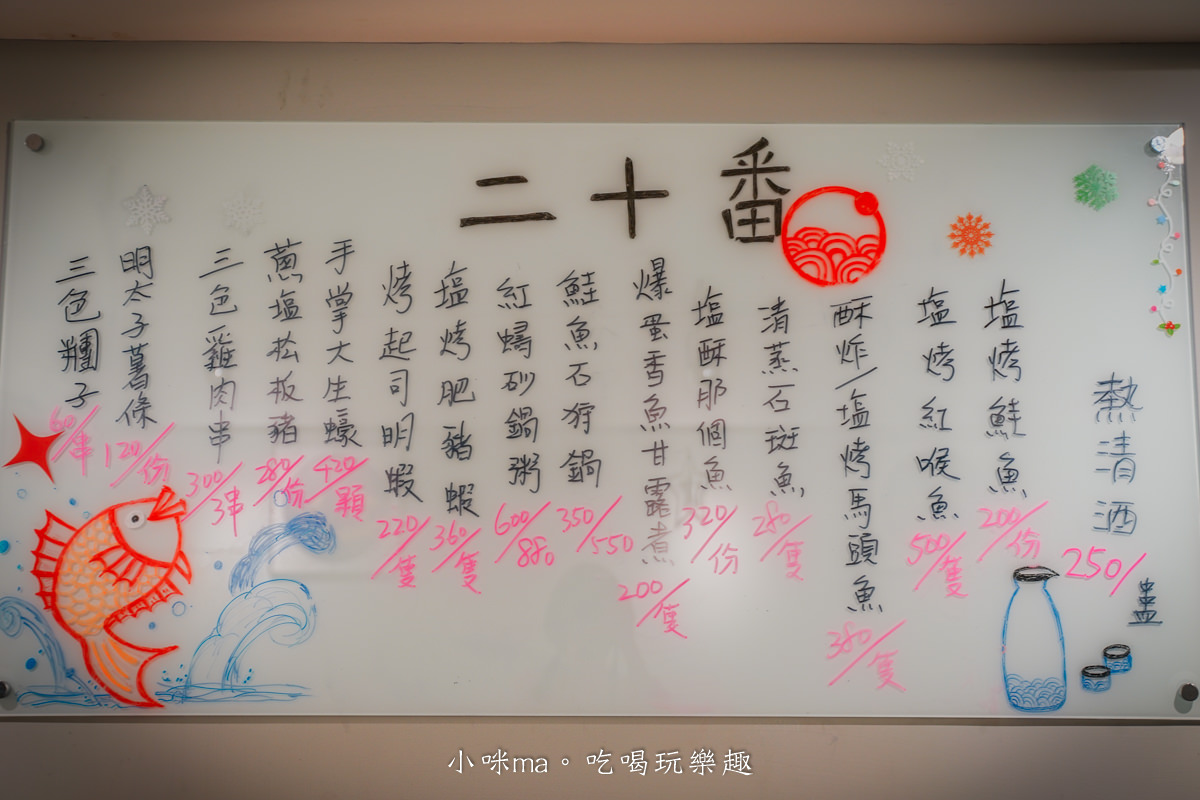 二十番
熱清酒 250/盅
塩烤鮭魚 200/份
塩烤紅喉魚 500/隻
酥炸/塩烤馬頭魚 380/隻
清蒸石斑魚 280/隻
塩酥那個魚 320/份
爆蛋香魚甘露煮 200/隻
鮭魚石狩鍋 350/550
紅蟳砂鍋粥 600/880
塩烤肥豬蝦 360/隻
烤起司明蝦 220/隻
手掌大生蠔 420/顆
蔥塩松板豬 280/份
三色雞肉串 300/3串
明太子薯條 120/份
三色糰子 60/串
小咪ma。吃喝玩樂趣